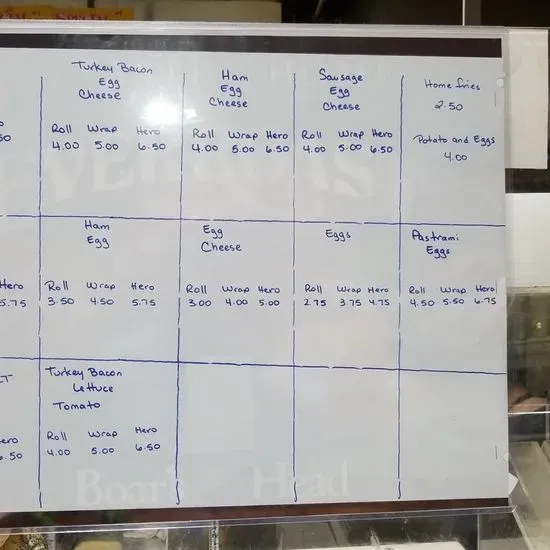 Turkey Bacon
Egg
Cheese
Roll Wrap Hero
4.00 5.00 6.50
Ham
Egg
Cheese
Roll Wrap Hero
4.00 5.00 6.50
Sausage
Egg
Cheese
Roll Wrap Hero
4.00 5.00 6.50
Home fries
2.50
Potato and Eggs
4.00
Hero
5.75
Ham
Egg
Roll Wrap Hero
3.50 4.50 5.75
Egg
Cheese
Roll Wrap Hero
3.00 4.00 5.00
Eggs
Roll Wrap Hero
2.75 3.75 4.75
Pastrami
Eggs
Roll Wrap Hero
4.50 5.50 6.75
Turkey Bacon
Lettuce
Tomato
Roll Wrap Hero
4.00 5.00 6.50
Boar's Head